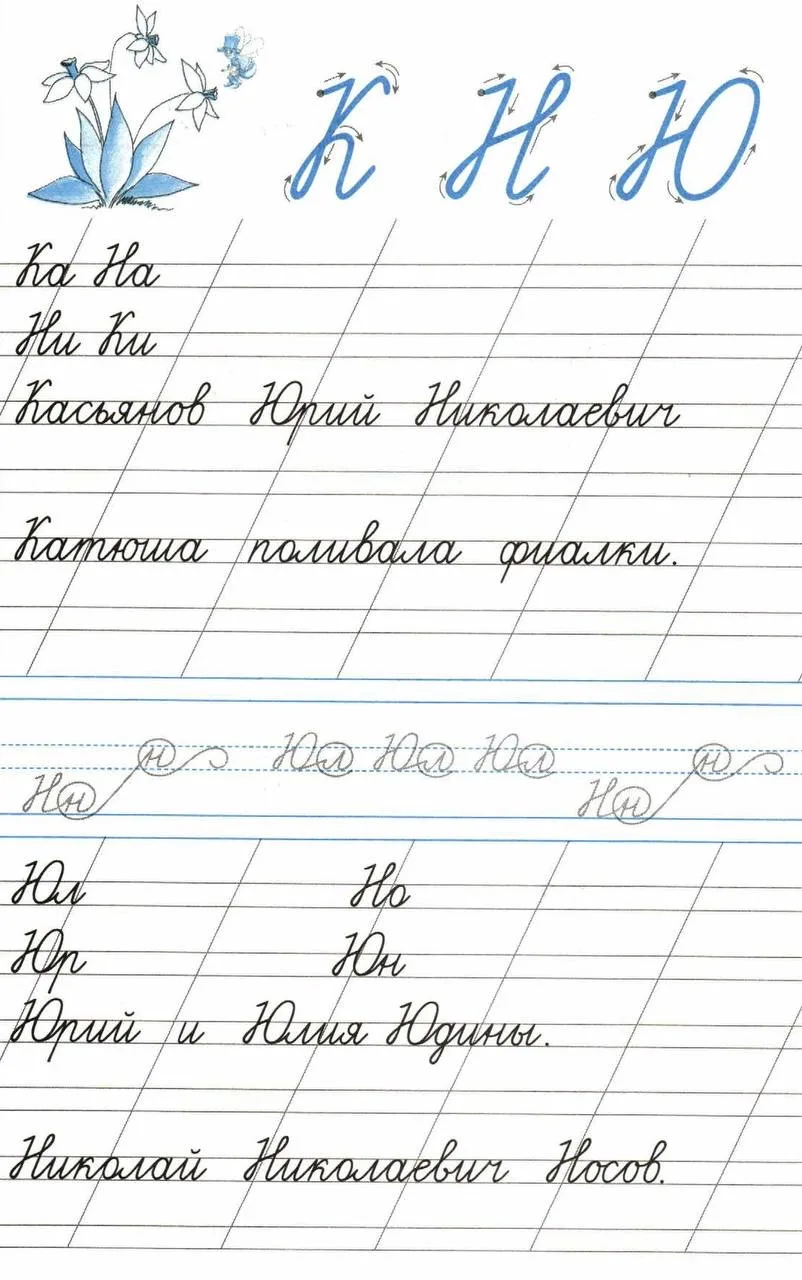 К Н Ю
Ка На
Ни Ки
Касьянов Юрий Николаевич
Катюша поливала фиалки.
Нн н Юл Юл Юл Нн н
Юл Но
Юр Юн
Юрий и Юлия Юдины.
Николай Николаевич Носов.